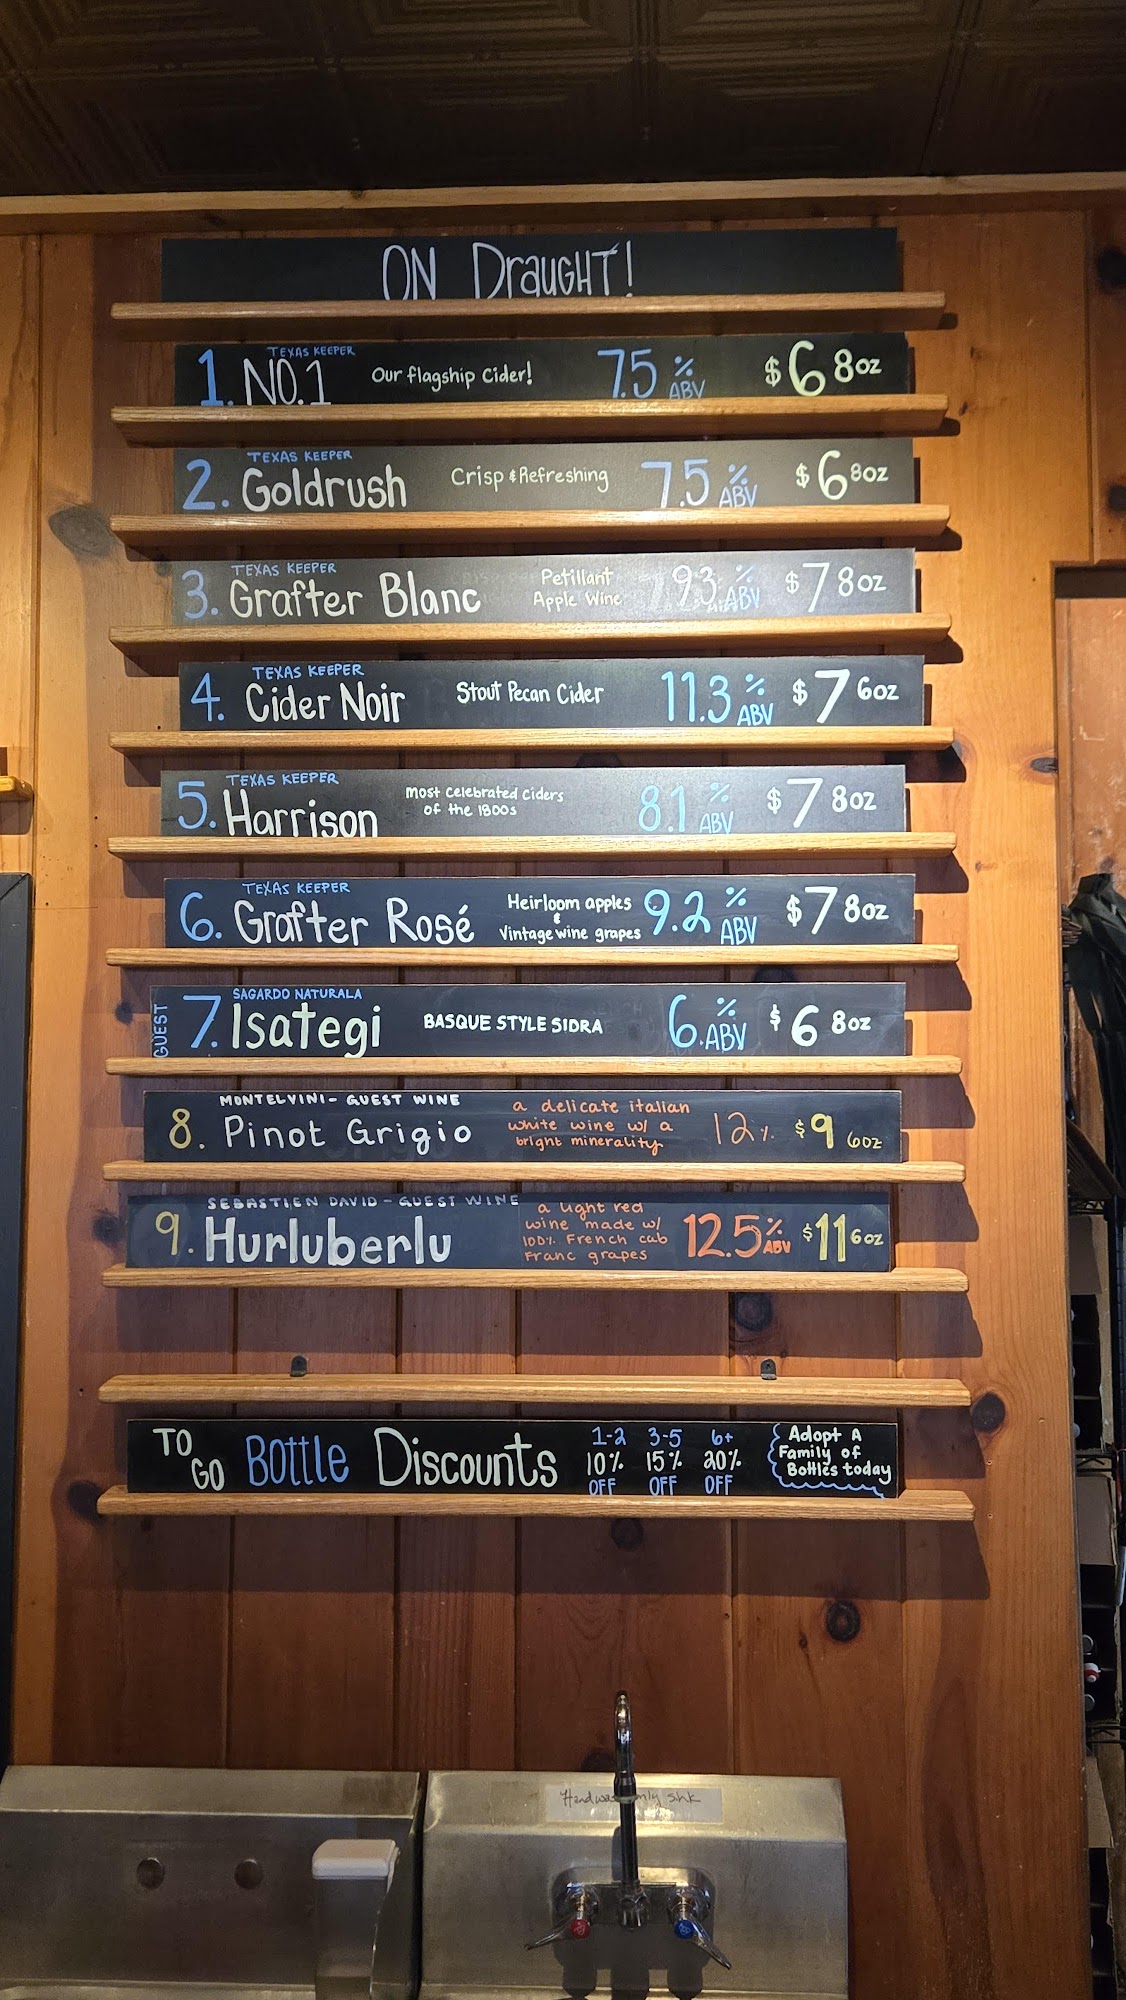 ON DraugHT!
1. TEXAS KEEPER NO.1 Our flagship Cider! 7.5 % ABV $6 8oz
2. TEXAS KEEPER Goldrush Crisp & Refreshing 7.5 % ABV $6 8oz
3. TEXAS KEEPER Grafter Blanc Petillant Apple Wine 9.3 % ABV $7 8oz
4. TEXAS KEEPER Cider Noir Stout Pecan Cider 11.3 % ABV $7 6oz
5. TEXAS KEEPER Harrison Most Celebrated Ciders of the 1800s 8.1 % ABV $7 8oz
6. TEXAS KEEPER Grafter Rosé Heirloom apples & Vintage wine grapes 9.2 % ABV $7 8oz
GUEST 7. SAGARDO NATURALA Isategi BASQUE STYLE SIDRA 6. % ABV $6 8oz
8. MONTELVINI- GUEST WINE Pinot Grigio a delicate italian white wine w/ a bright minerality 12% $9 6oz
9. SEBASTIEN DAVID - GUEST WINE Hurluberlu a light red wine made w/ 100% French cab Franc grapes 12.5% ABV $11 6oz
TO GO BOttle Discounts 1-2 10% OFF 3-5 15% OFF 6+ 20% OFF Adopt A Family of Bottles today
sink